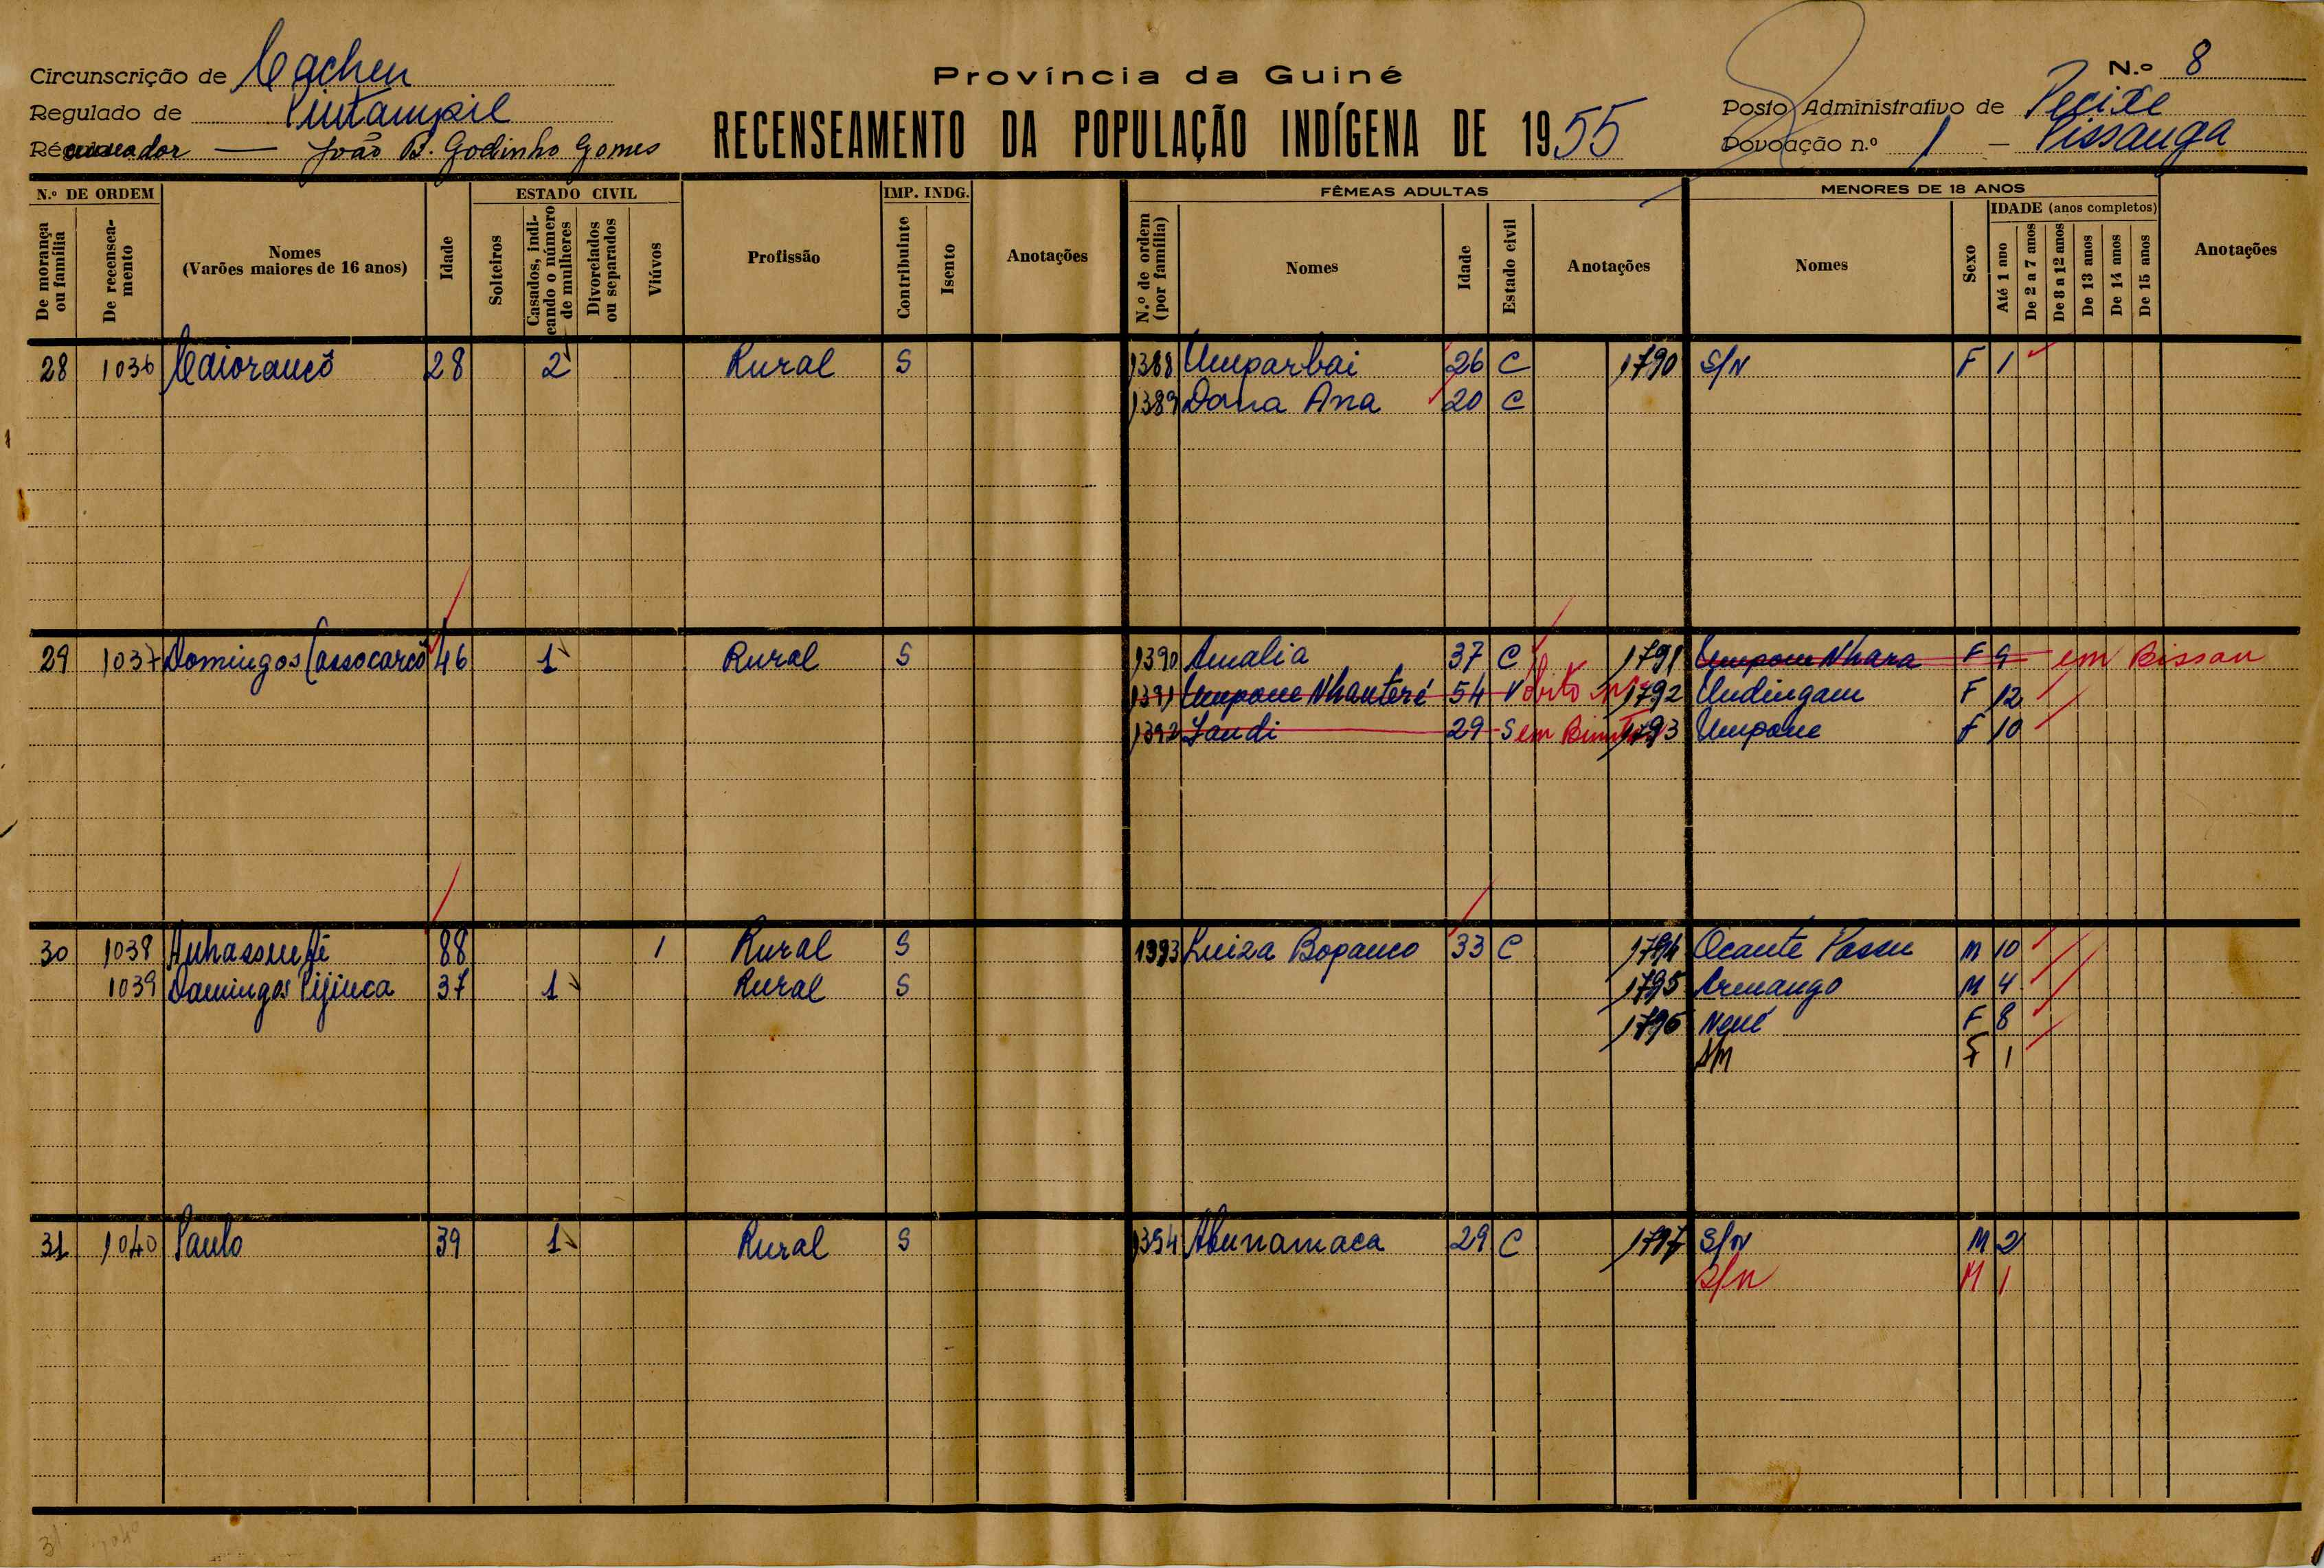 Circunscrição de Cacheu
Província da Guiné
N.º 8
Regulado de Pintampil
RECENSEAMENTO DA POPULAÇÃO INDÍGENA DE 1955
Posto Administrativo de Pecixe
Recenseador — João B. Godinho Gomes
Povoação n.º 1 - Pissanga
N.º DE ORDEM
ESTADO CIVIL
IMP. INDG.
FÊMEAS ADULTAS
MENORES DE 18 ANOS
De morança ou família
De recenseamento
Nomes (Varões maiores de 16 anos)
Idade
Solteiros
Casados, indicando o número de mulheres
Divorciados ou separados
Viúvos
Profissão
Contribuinte
Isento
Anotações
N.º de ordem (por família)
Nomes
Idade
Estado civil
Anotações
Nomes
Sexo
IDADE (anos completos)
Até 1 ano
De 2 a 7 anos
De 8 a 12 anos
De 13 anos
De 14 anos
De 15 anos
Anotações
28 1036 Caioraucô 28 2 Rural S 1388 Umparbai 26 C 1790 S/N F 1
1389 Dona Ana 20 C
29 1037 Domingos Cassocarcô 46 1 Rural S 1390 Amalia 37 C 1791 Umpone Nhara F 9 em Bissau
1391 Umpone Nhanteré 54 V obito 1792 Undingam F 12
1392 Landi 29 S em 1793 Umpone F 10
30 1038 88 1 Rural S 1393 Luiza Bopanco 33 C 1794 Ocante Passu M 10
1039 Domingos Pijinca 37 1 Rural S 1795 Armango M 4
1796 Nené F 8
S/N F 1
31 1040 Paulo 39 1 Rural S 1394 Abunamaca 29 C 1797 S/N M 2
S/N M 1